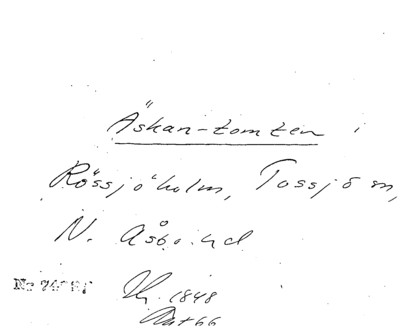 Äskan-tomten i
Rössjöholm, Tossjö sn,
N. Åsbo hd
1848